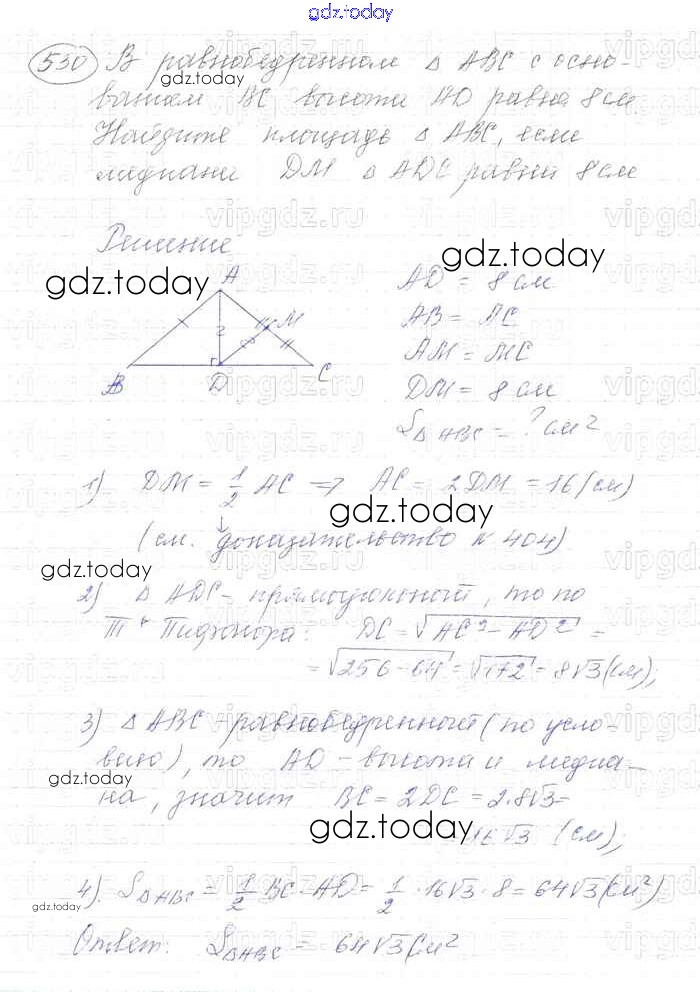 gdz.today
530 В равнобедренном △ ABC с осно-
gdz.today
ванием BC высота AD равна 8 см.
Найдите площадь △ ABC, если
медиана DM △ ADC равна 8 см
vipgdz.ru
Решение
gdz.today
gdz.today
A
M
B
D
C
AD = 8 см
AB = AC
AM = MC
DM = 8 см
S△ABC = ? см²
1) DM = 1/2 AC => AC = 2DM = 16 (см)
gdz.today
(см. доказательство № 404)
gdz.today
2) △ ADC - прямоугольный, то по
т. Пифагора: DC = √AC² - AD² =
= √256 - 64 = √192 = 8√3 (см);
3) △ ABC - равнобедренный (по усло-
вию), то AD - высота и медиа-
gdz.today
на, значит BC = 2DC = 2·8√3 =
gdz.today
16√3 (см);
4). S△ABC = 1/2 BC · AD = 1/2 · 16√3 · 8 = 64√3 (см²)
gdz.today
Ответ: S△ABC = 64√3 см²